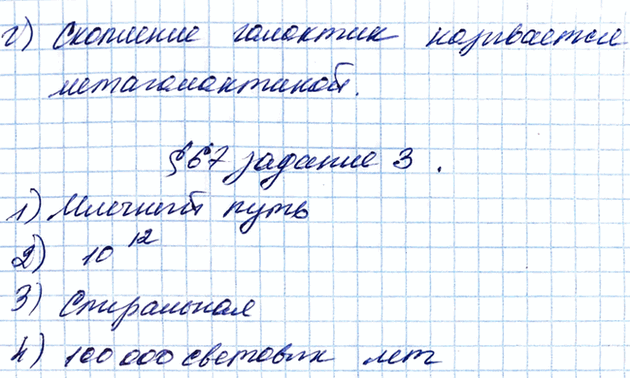 г) Скопление галактик называется
метагалактикой.
§67 задание 3.
1) Млечный путь
2) 10¹²
3) Спиральная
4) 100 000 световых лет